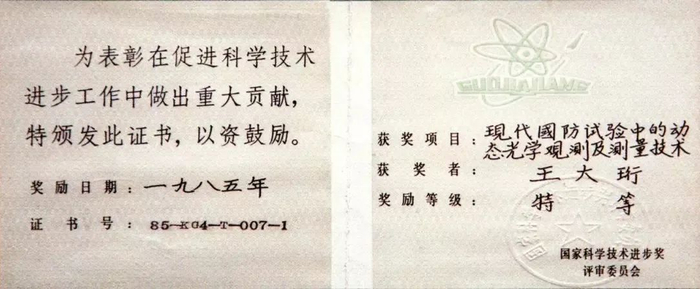 为表彰在促进科学技术
进步工作中做出重大贡献，
特颁发此证书，以资鼓励。
奖励日期：一九八五年
证书号：85-KG4-T-007-1
获奖项目：现代國防试验中的动
态光学观测及测量技术
获奖者：王大珩
奖励等级：特等
国家科学技术进步奖
评审委员会